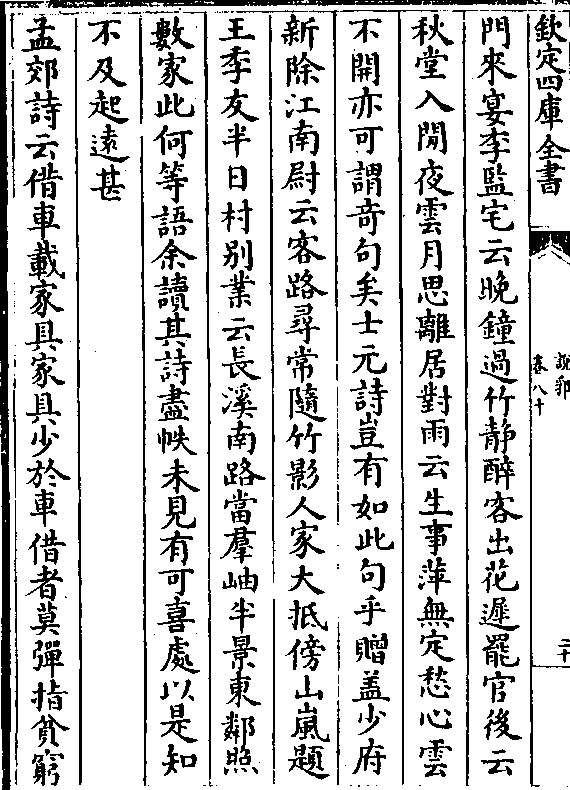 欽定四庫全書
說郛
卷八十
二十
門來宴李監宅云晚鐘過竹静醉客出花遲罷官後云
秋堂入閒夜雲月思離居對雨云生事萍無定愁心雲
不開亦可謂竒句矣士元詩豈有如此句乎贈葢少府
新除江南尉云客路尋常隨竹影人家大抵傍山嵐題
王季友半日村别業云長溪南路當羣岫半景東鄰照
數家此何等語余讀其詩盡帙未見有可喜處以是知
不及起逺甚
孟郊詩云借車載家具家具少於車借者莫彈指貧窮